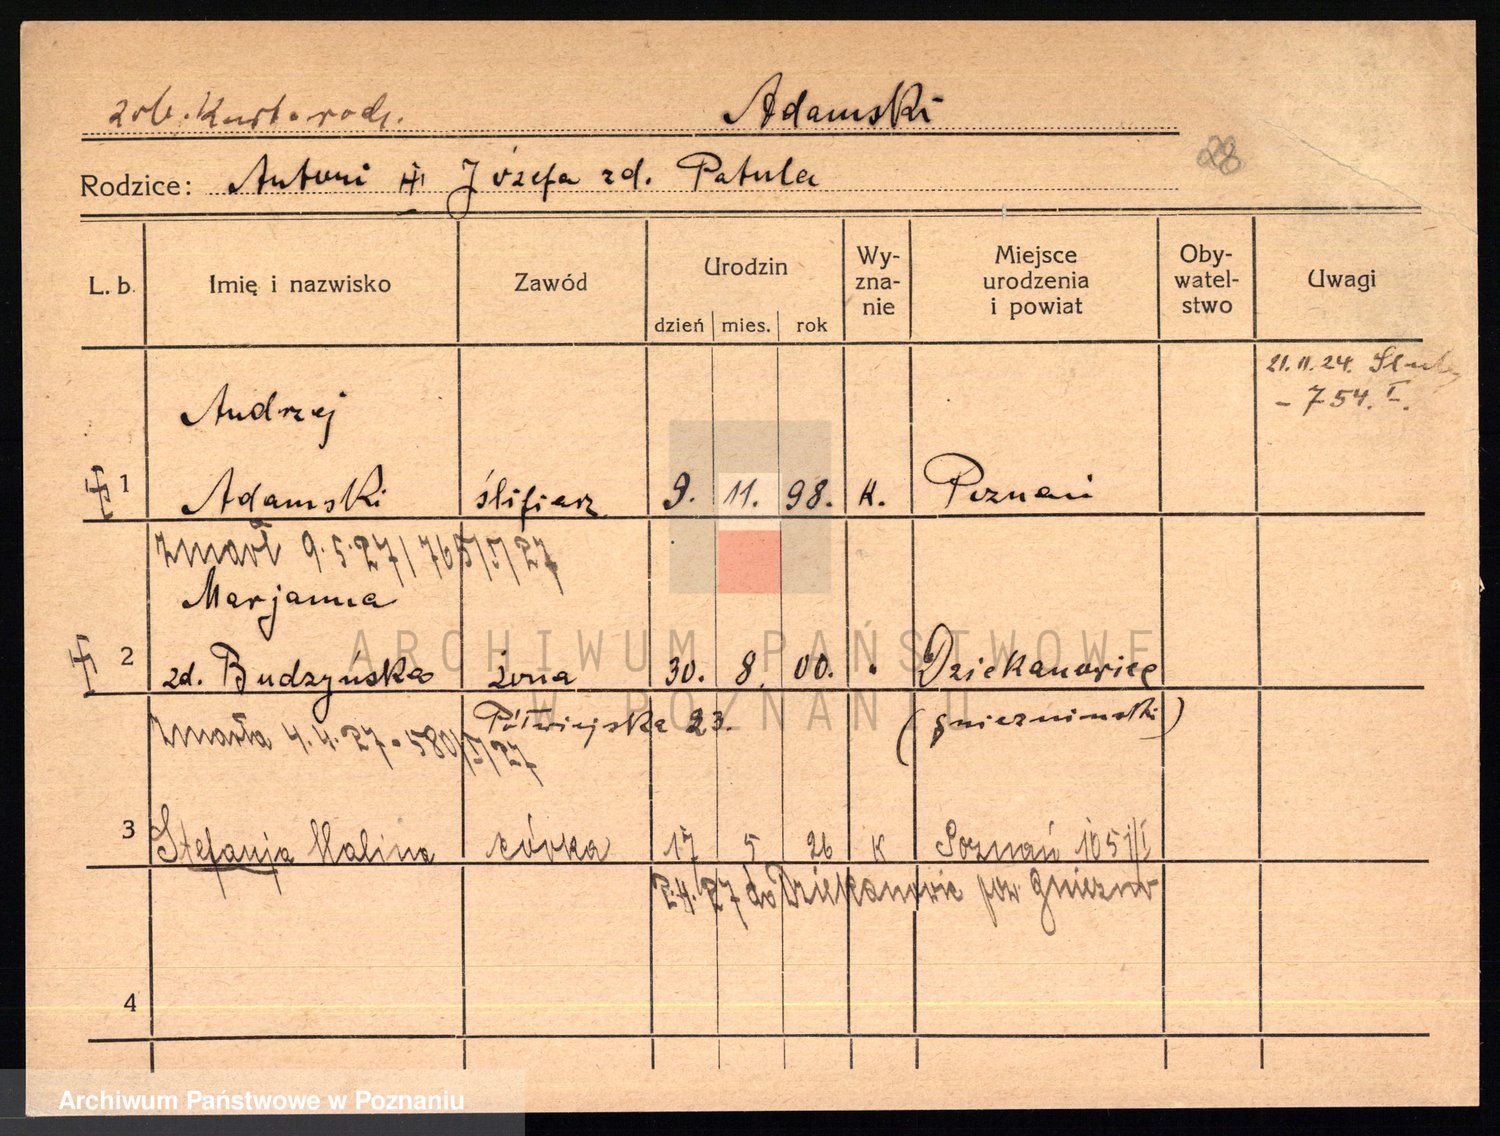 zob. Kart. rodz. Adamski
28
Rodzice: Antoni i Józefa zd. Patula
L. b. Imię i nazwisko Zawód Urodzin dzień mies. rok Wyznanie Miejsce urodzenia i powiat Obywatelstwo Uwagi
21. 11. 24.
– 754. I.
Andrzej
1 Adamski ślifierz 9. 11. 98. K. Poznań
Zmarł 9.5.27/765/I/27
Marjanna
2 zd. Budzyńska żona 30. 8. 00. " Dziekanowice
Półwiejska 23. (gnieźnieński)
Zmarła 4.4.27 - 580/I/27
3 Stefanja Halina córka 17 5 26 K Poznań 1051/I
2.4./27 do Dziekanowic pow Gniezno
4
ARCHIWUM PAŃSTWOWE
W POZNANIU
Archiwum Państwowe w Poznaniu